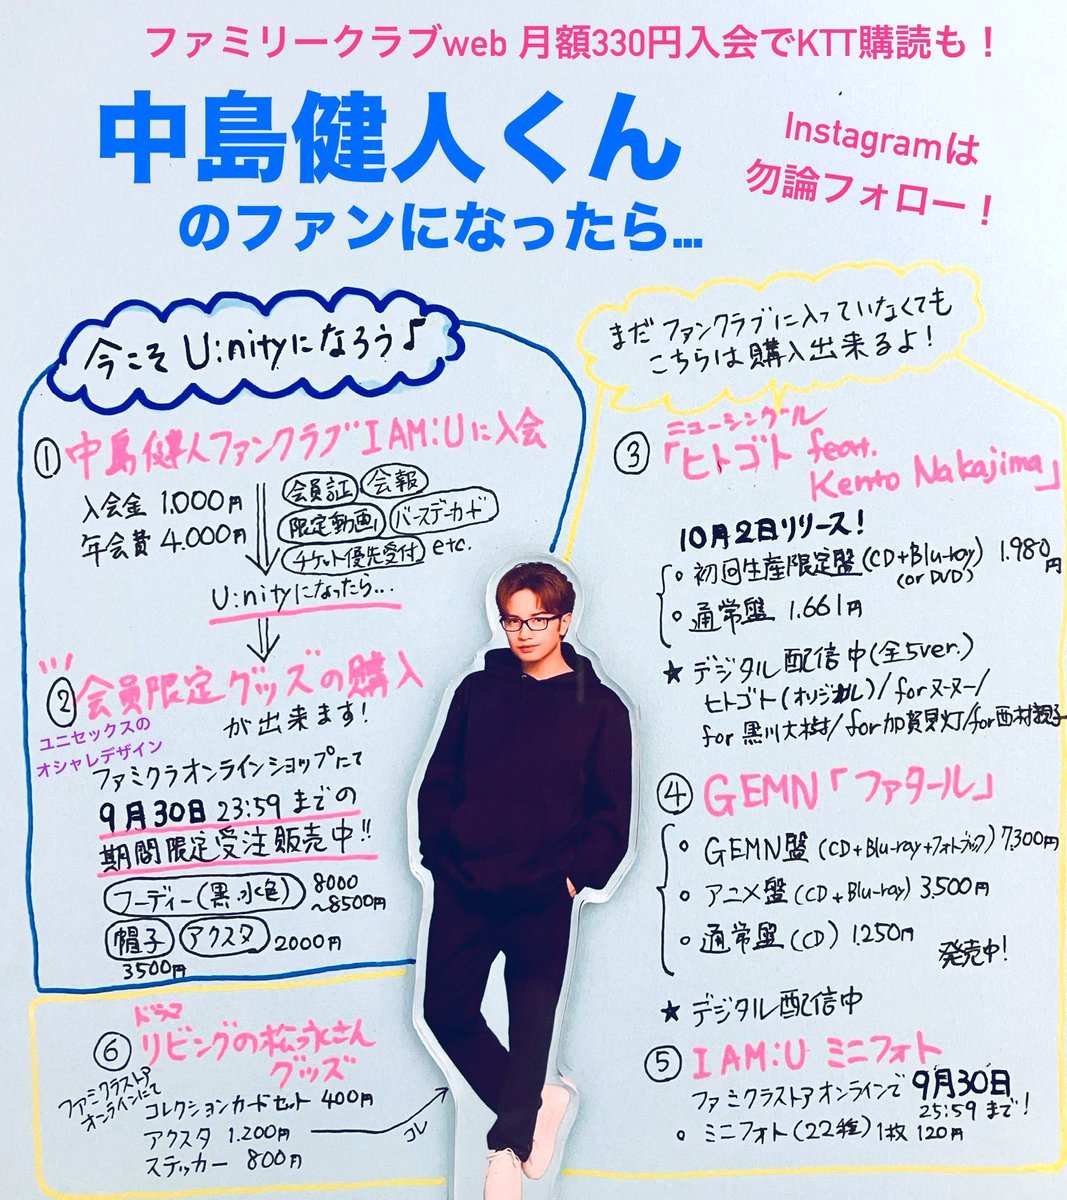 ファミリークラブweb 月額330円入会でKTT購読も！
中島健人くん
のファンになったら...
Instagramは
勿論フォロー！
今こそ U:nityになろう♪
① 中島健人ファンクラブ I AM:Uに入会
入会金 1.000円
年会費 4.000円
会員証 会報
限定動画 バースデーカード
チケット優先受付 etc.
U:nityになったら...
② 会員限定グッズの購入
が出来ます!
ユニセックスの
オシャレデザイン
ファミクラオンラインショップにて
9月30日 23:59 までの
期間限定受注販売中!!
フーディー(黒・水色) 8000
〜8500円
帽子 アクスタ 2000円
3500円
まだ ファンクラブに入っていなくても
こちらは購入出来るよ!
③ ニューシングル
「ヒトゴト feat.
Kento Nakajima」
10月2日リリース!
○ 初回生産限定盤(CD+Blu-ray) 1.980円
(or DVD)
○ 通常盤 1.661円
★ デジタル配信中(全5ver.)
ヒトゴト(オリジナル)/for ヌーヌー/
for 黒川大樹/for加賀見灯/for西村親子
④ GEMN「ファタール」
○ GEMN盤 (CD+Blu-ray+フォトブック) 7.300円
○ アニメ盤 (CD+Blu-ray) 3.500円
○ 通常盤 (CD) 1.250円
発売中!
★ デジタル配信中
⑤ I AM:U ミニフォト
ファミクラストアオンラインで 9月30日
25:59 まで!
○ ミニフォト(22種) 1枚 120円
⑥ ドラマ
リビングの松永さん
グッズ
ファミクラストア
オンラインにて
コレクションカードセット 400円
アクスタ 1.200円
コレ
ステッカー 800円